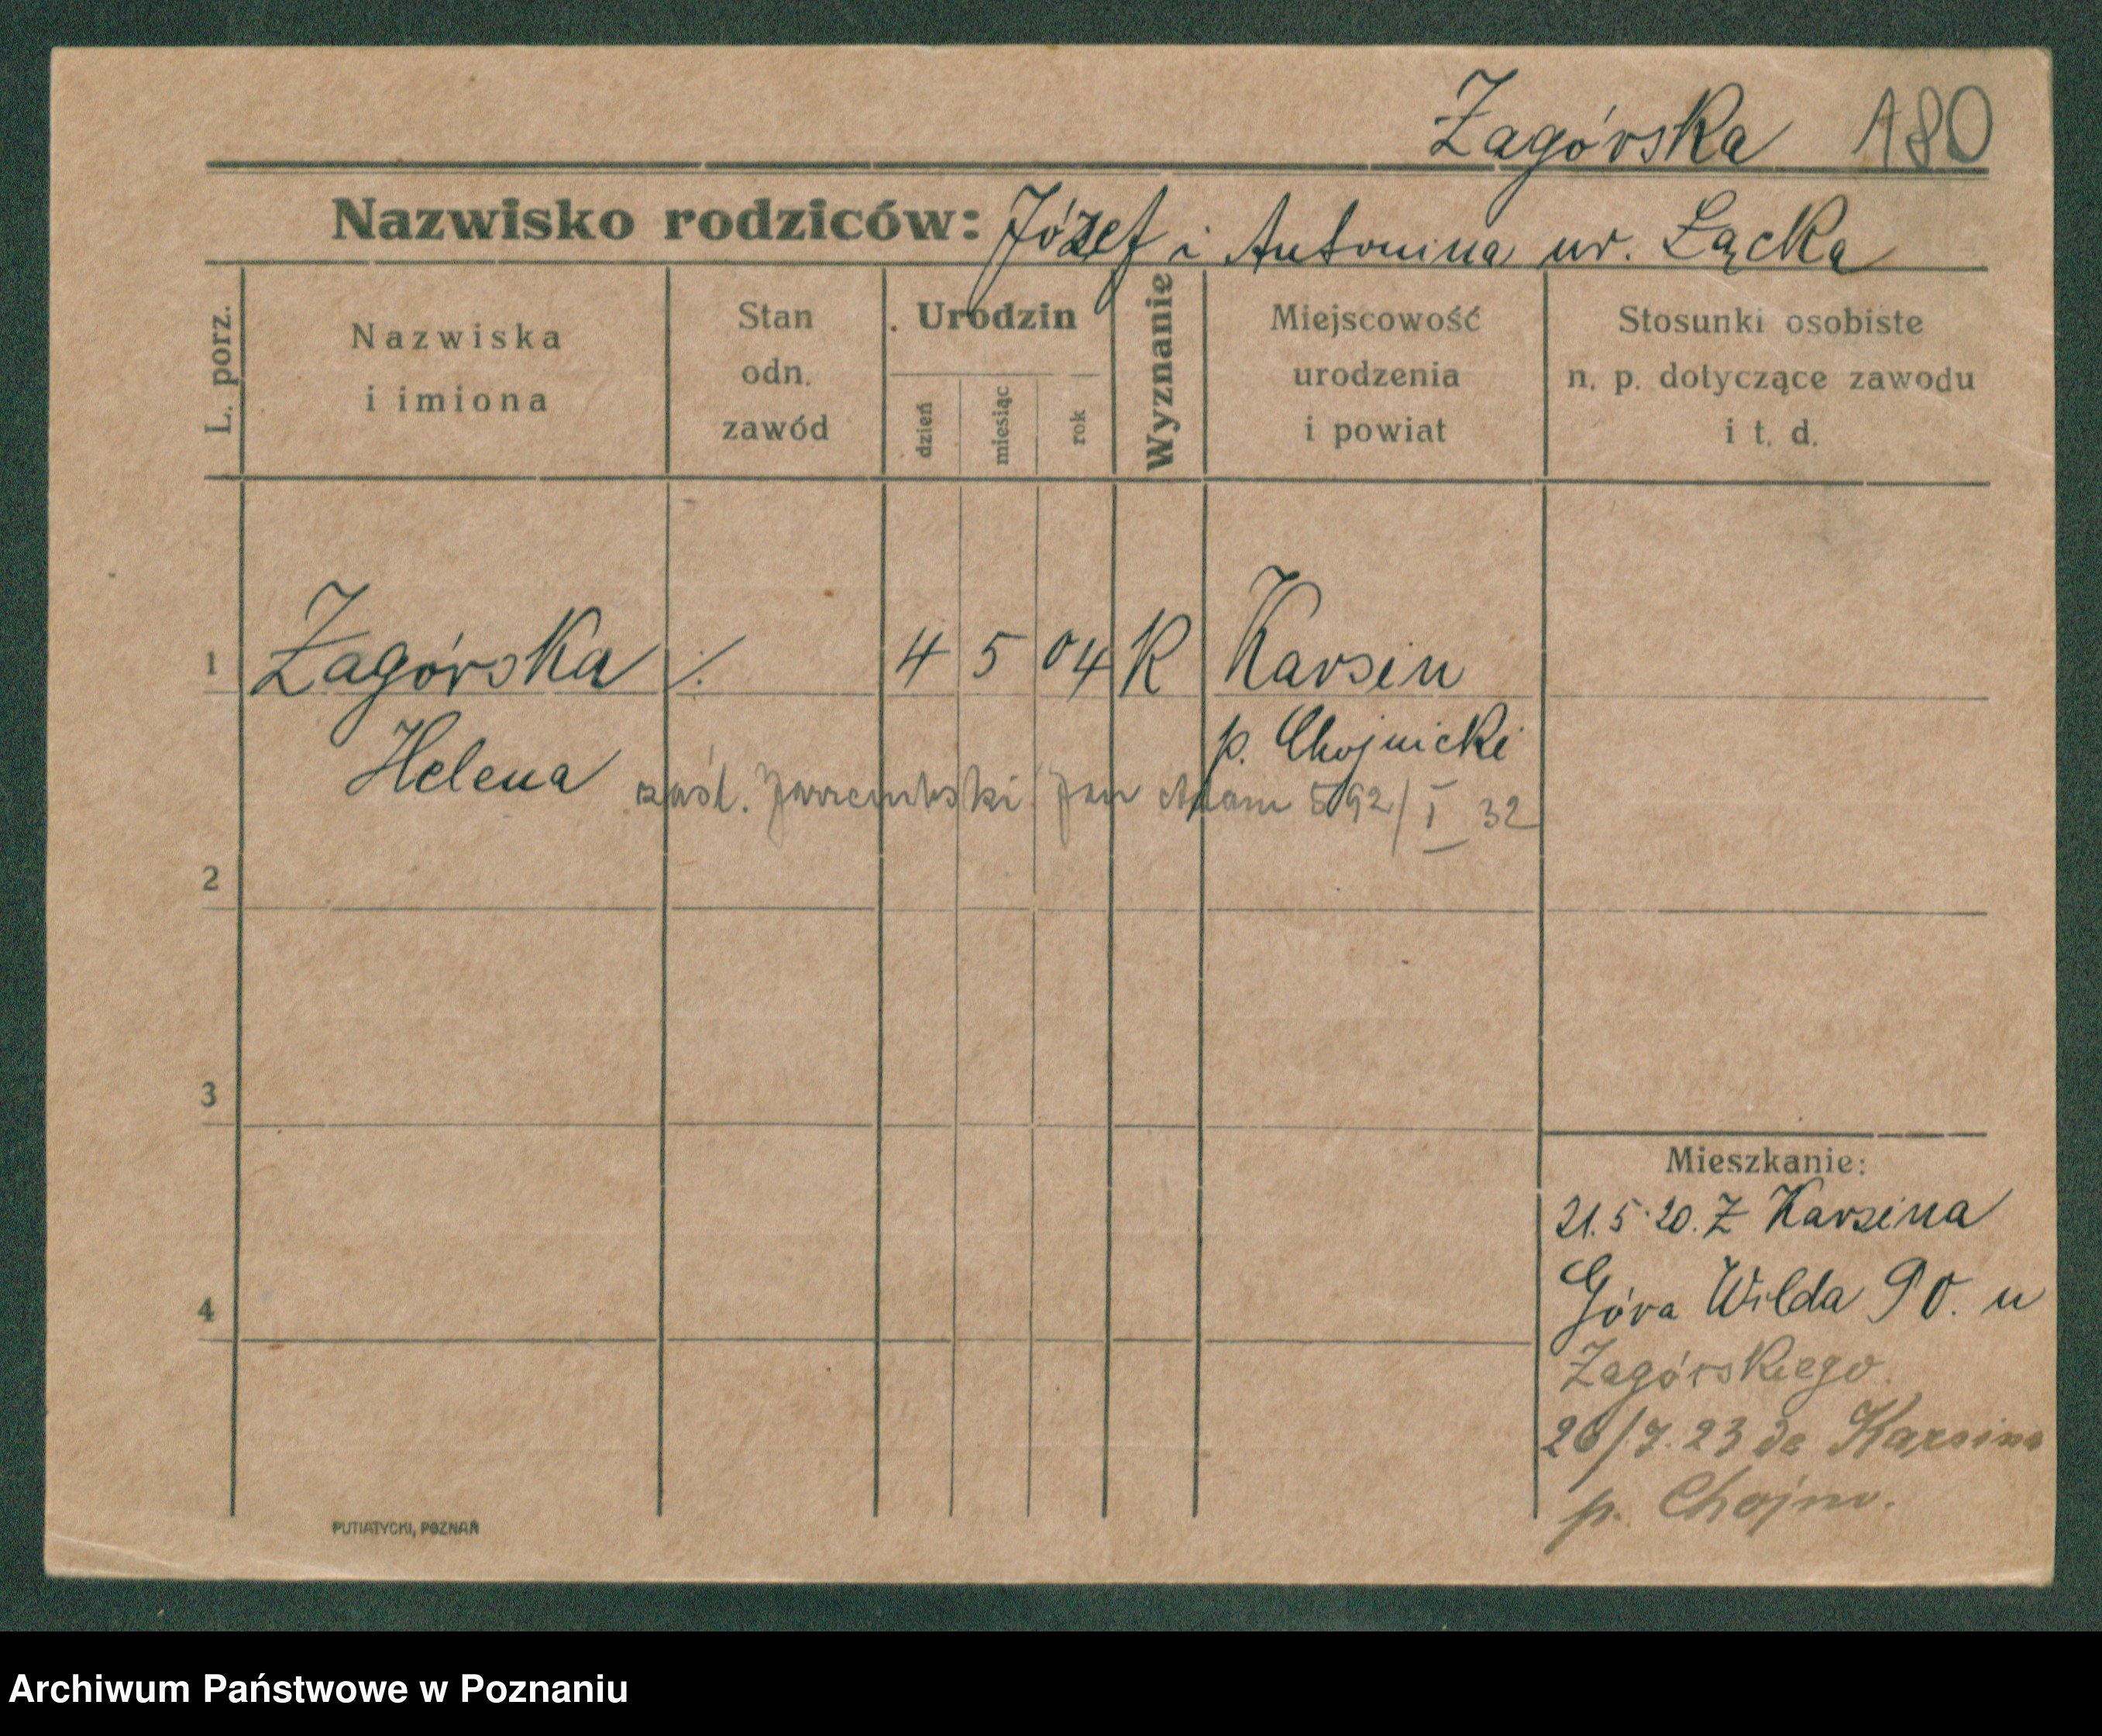 Zagórska 180
Nazwisko rodziców: Józef i Antonina ur. Łącka
L. porz.
Nazwiska
i imiona
Stan
odn.
zawód
Urodzin
dzień
miesiąc
rok
Wyznanie
Miejscowość
urodzenia
i powiat
Stosunki osobiste
n. p. dotyczące zawodu
i t. d.
1 Zagórska ·/. 4 5 04 K Karsin
Helena p. Chojnicki
zaśl. Jan Adam 592/I 32
2
3
4
Mieszkanie:
21.5.20. Z Karsina
Góra Wilda 90. u
Zagórskiego
26/7.23 do Karsina
p. Chojn.
PUTIATYCKI, POZNAŃ
Archiwum Państwowe w Poznaniu